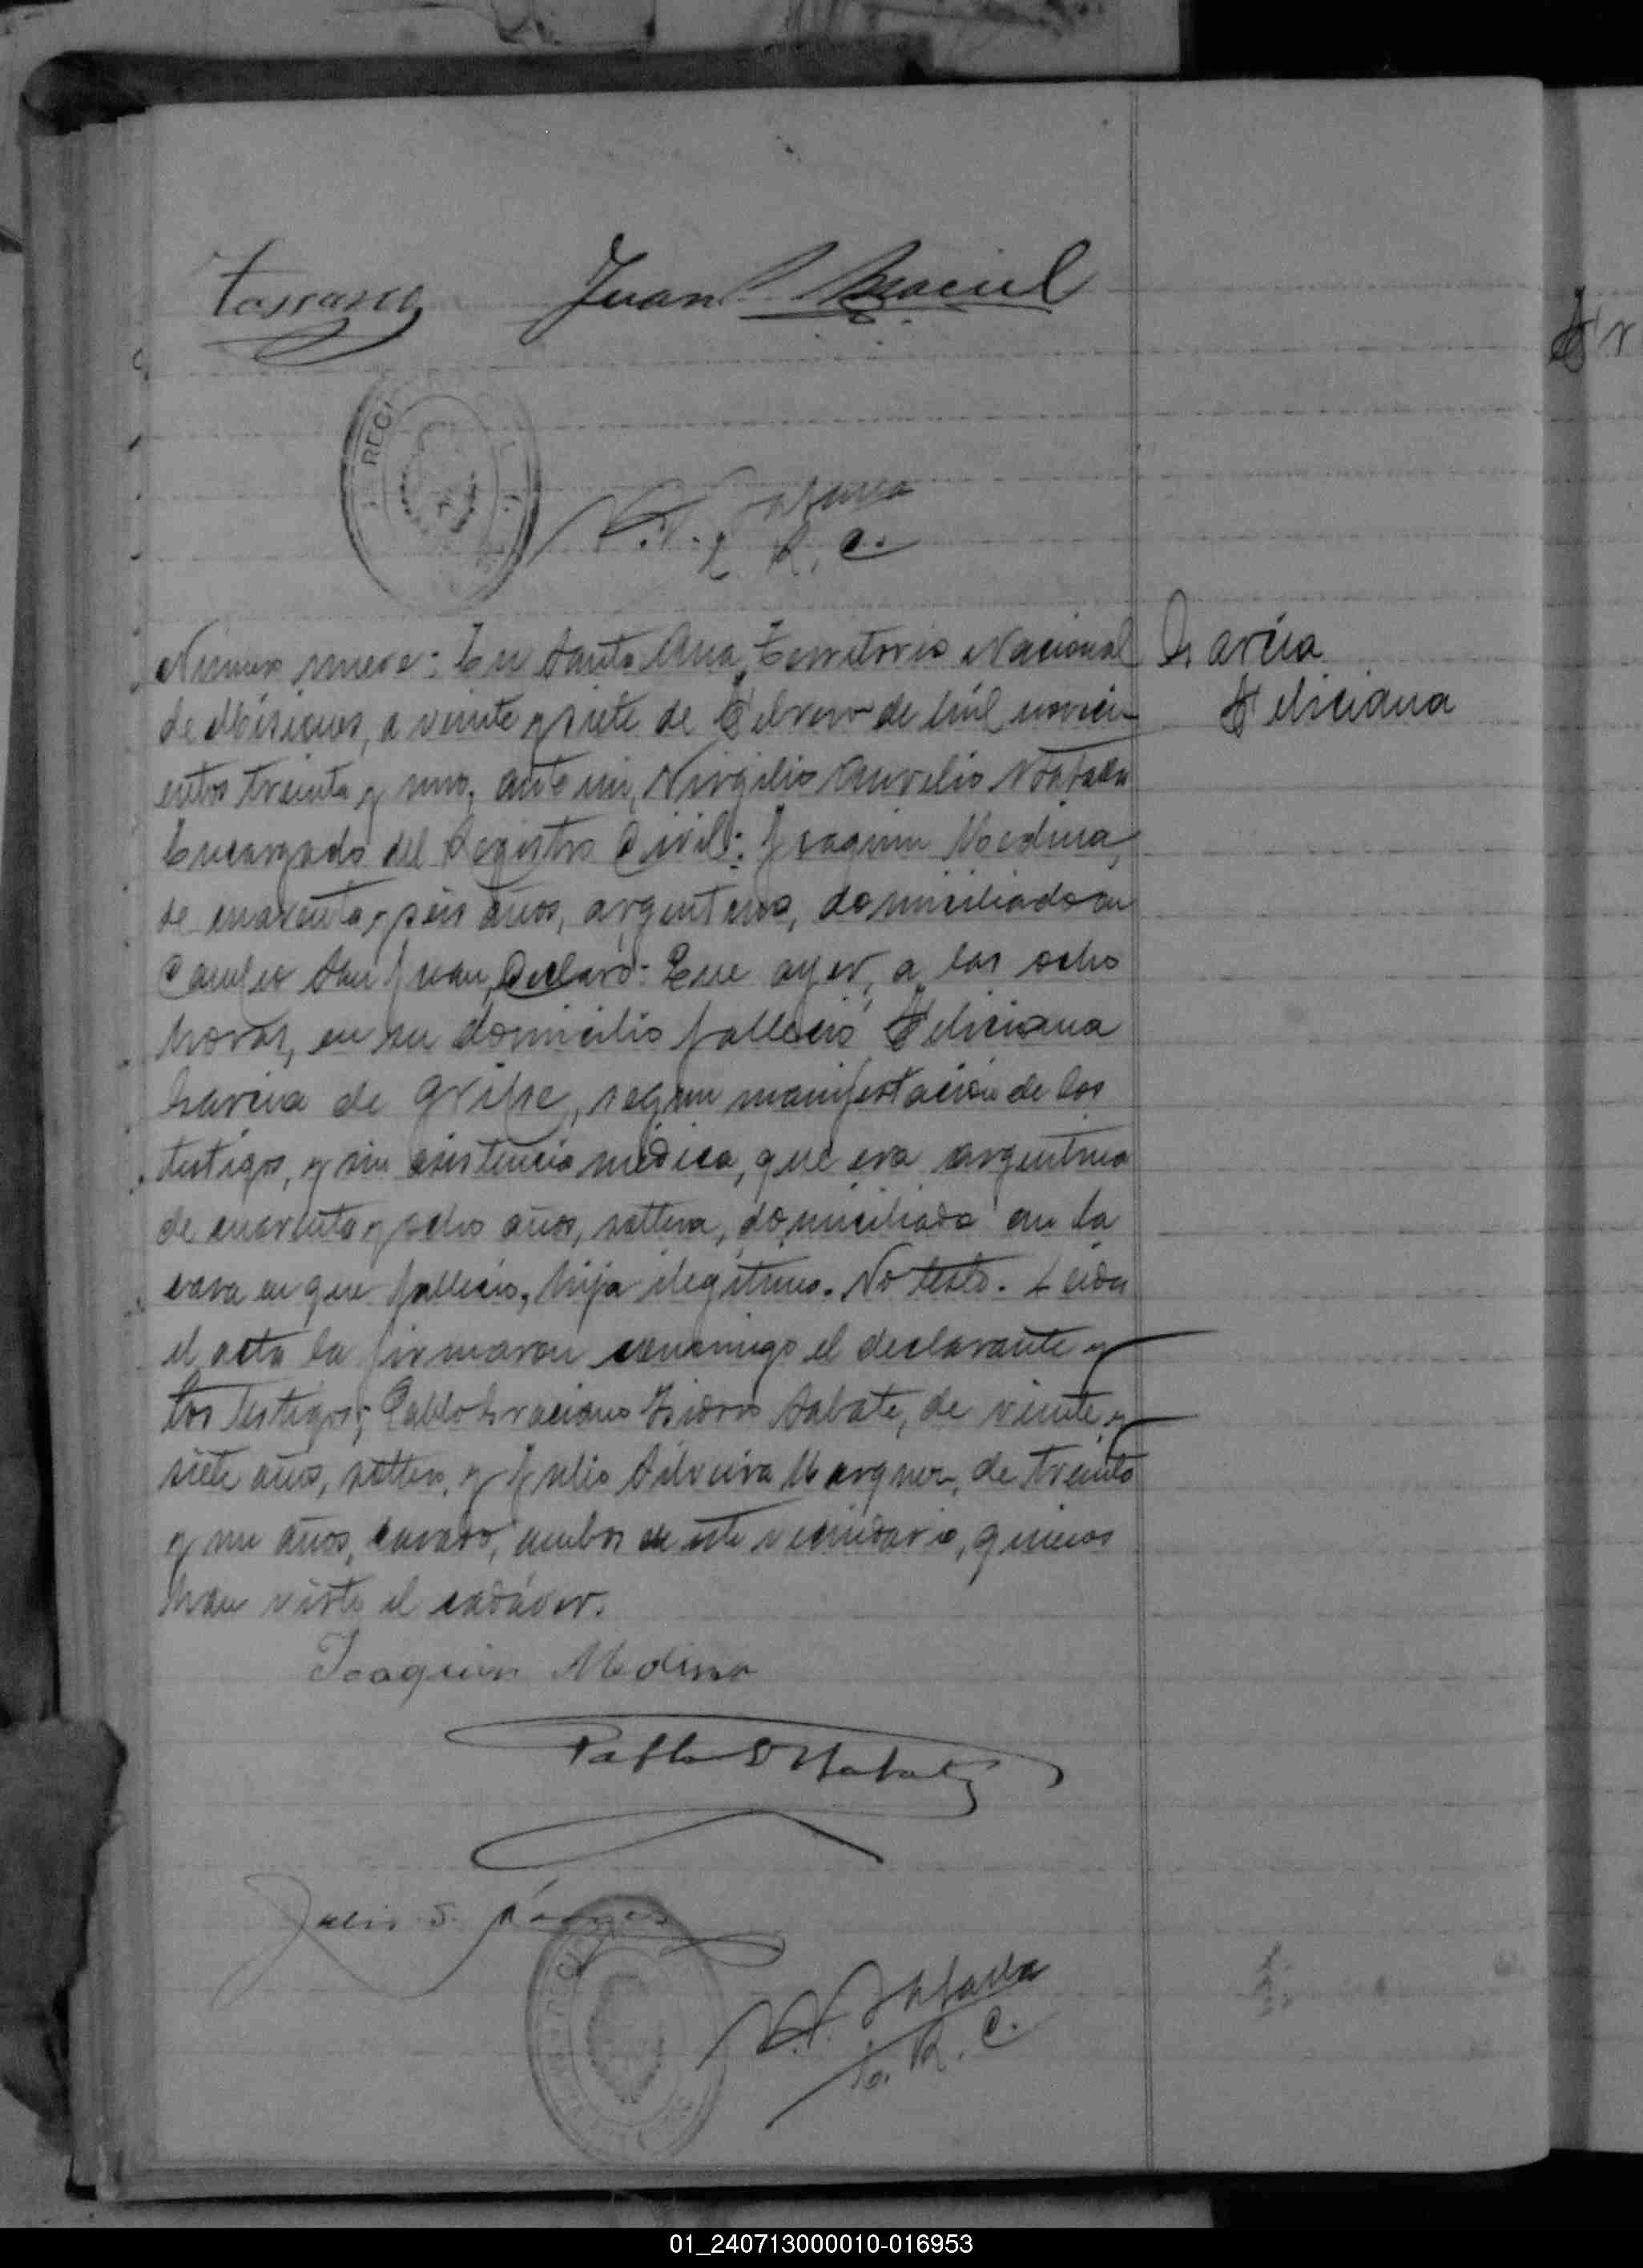 Juan Maciel
REG
R. C.
Número nueve: En Santa Ana, Territorio Nacional
de Misiones, a veinte y siete de Febrero de mil noveci-
entos treinta y uno, ante mi, Virgilio Aurelio
Encargado del Registro Civil: Joaquin Medina,
de cuarenta y seis años, argentino, domiciliado en
Campo San Juan, Declaró: Que ayer, a las ocho
horas, en su domicilio falleció Feliciana
Garcia de gripe, segun manifestación de los
testigos, y sin asistencia médica, que era argentina
de cuarenta y ocho años, soltera, domiciliada en la
casa en que falleció, hija ilegítima. No testó. Leida
el acta la firmaron conmigo el declarante y
los testigos; Pablo Graciano Isidro Sabate, de veinte y
siete años, soltero, y Julio Silveira Marquez, de treinta
y un años, casado, ambos de este vecindario, quienes
han visto el cadáver.
Garcia
Feliciana
Joaquin Medina
Pablo Sabate
Julio S.
R. C.
01_240713000010-016953